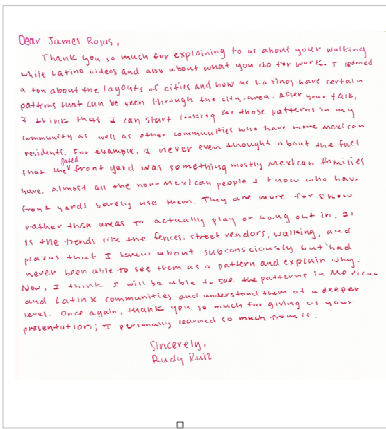 Dear James Rojas,
Thank you so much for explaining to us about your walking
while Latino videos and also about what you do for work. I learned
a ton about the layouts of cities and how us Latinos have certain
patterns that can be seen through the city area. After your talk,
I think that I can start looking for those patterns in my
community as well as other communities who have more mexican
residents. For example, I never even thought about the fact
that the front yard was something mostly mexican families
have, almost all the non mexican people I know who have
front yards barely use them. They are more for show
rather than areas to actually play or hang out in. It
is the trends like the fences, street vendors, walking, and
plazas that I knew about subconsciously but had
never been able to see them as a pattern and explain why.
Now, I think I will be able to see the patterns in Mexican
and Latinx communities and understand them at a deeper
level. Once again, thank you so much for giving us your
presentation; I personally learned so much from it.
Sincerely,
Rudy Ruiz